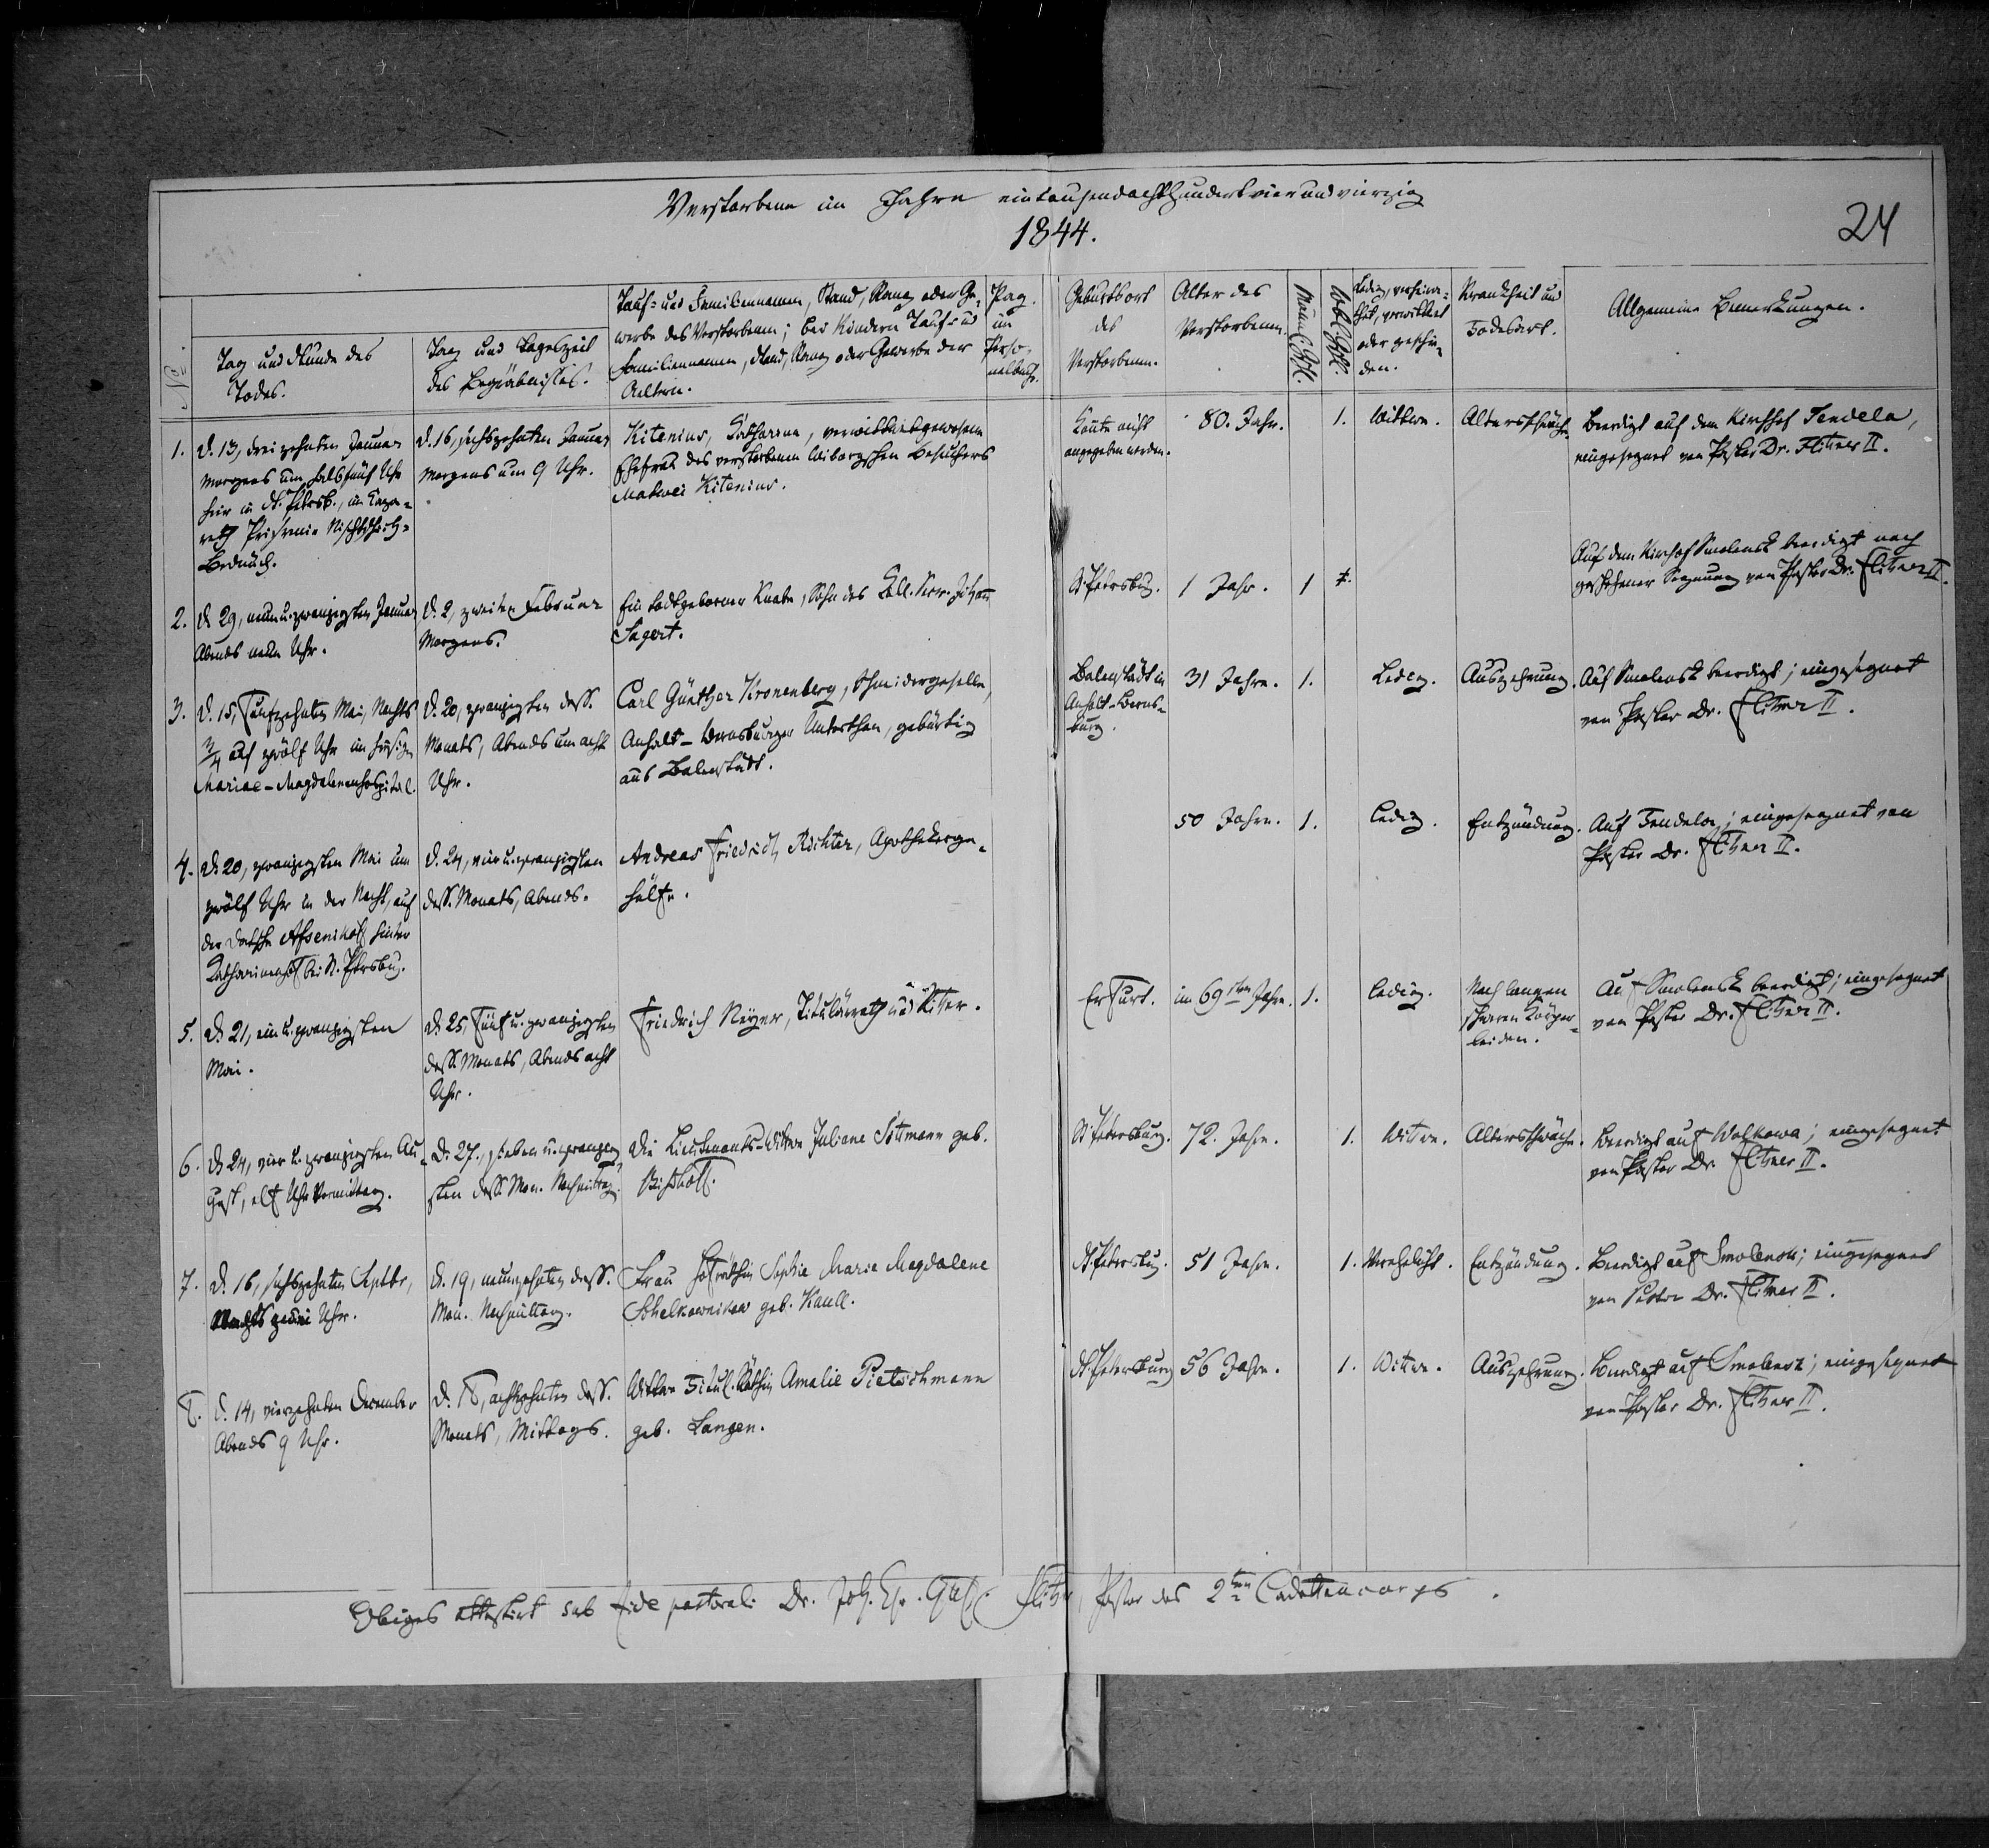 Verstorbene im Jahre eintausendachthundertvierundvierzig
1844.
24
N
Tag und Stunde des
Todes.
Tag und Tageszeit
des Begräbnisses.
Tauf- und Familiennamen, Stand, Rang oder Ge-
werbe des Verstorbenen; bei Kindern Tauf- und
Familiennamen, Stand, Rang oder Gewerbe der
Aeltern.
Pag.
im
Perso-
nalbuch.
Geburtsort
des
Verstorbenen.
Alter des
Verstorbenen.
Männl. Gschl.
Weibl. Gschl.
Ledig, verheira-
thet, verwittwet
oder geschie-
den.
Krankheit und
Todesart.
Allgemeine Bemerkungen.
1.
D. 13, dreizehnten Januar
Morgens um halb fünf Uhr
hier in St. Petersb., im Laza-
reth
D. 16, sechszehnten Januar
Morgens um 9 Uhr.
Kitenius, Katharina, verwittwet gewesene
Ehefrau des verstorbenen Wiborgschen Besuchers
Matwei Kitenius.
Konnte nicht
angegeben werden.
80. Jahr.
1.
Wittwe.
Altersschwäche.
Beerdigt auf dem Kirchhof Tendela,
eingesegnet von Pastor Dr. Flitner II.
2.
D. 29, neun u. zwanzigsten Januar
Abends Uhr.
D. 2, zweiten Februar
Morgens.
Ein todtgeborener Knabe, Sohn des Coll. Secr. Johann
Sagert.
St. Petersburg.
1 Jahr.
1
Auf dem Kirchhof Smolensk beerdigt nach
geschehener Segnung von Pastor Dr. Flitner II.
3.
D. 15, Fünfzehnten Mai, Nachts
3/4 auf zwölf Uhr im hiesigen
Mariae-Magdalenenhospital.
D. 20, zwanzigsten dess.
Monats, Abends um acht
Uhr.
Carl Günther Kronenberg, Schneidergeselle,
Anhalt-Bernburger Unterthan, gebürtig
aus Balenstädt.
Balenstädt in
Anhalt-Bern-
burg.
31 Jahre.
1.
Ledig.
Auszehrung.
Auf Smolensk beerdigt; eingesegnet
von Pastor Dr. Flitner II.
4.
D. 20, zwanzigsten Mai um
zwölf Uhr in der Nacht, auf
der Datsche hinter
Katharinenhof bei St. Petersburg.
D. 24, vier u. zwanzigsten
dess. Monats, Abends.
Andreas Friedrich Richter, Apothekerge-
hülfe.
50 Jahre.
1.
Ledig.
Entzündung.
Auf Tendela; eingesegnet von
Pastor Dr. Flitner II.
5.
D. 21, ein u. zwanzigsten
Mai.
D. 25, Fünf u. zwanzigsten
dess. Monats, Abends acht
Uhr.
Friedrich Titulärrath und Ritter.
Erfurt.
im 69sten Jahre.
1.
Ledig.
Nach langen
schweren Körper-
leiden.
Auf Smolensk beerdigt; eingesegnet
von Pastor Dr. Flitner II.
6.
D. 24, vier u. zwanzigsten Au-
gust, elf Uhr Vormittag.
D. 27., sieben u. zwanzig
sten dess. Mon. Nachmittag.
Die Lieutenants-Wittwe Juliane Sittmann geb.
Bischoff.
St. Petersburg.
72. Jahr.
1.
Wittwe.
Altersschwäche.
Beerdigt auf Wolkowa; eingesegnet
von Pastor Dr. Flitner II.
7.
D. 16, sechszehnten Septbr,
Nachts Uhr.
D. 19, neunzehnten dess.
Mon. Nachmittag.
Frau Hofräthin Sophie Marie Magdalene
Schelkownikow geb. Kaull.
St. Petersburg.
51 Jahr.
1.
Verehelicht.
Entzündung.
Beerdigt auf Smolensk; eingesegnet
von Pastor Dr. Flitner II.
8.
D. 14, vierzehnten December
Abends 9 Uhr.
D. 18, achtzehnten dess.
Monats, Mittags.
Wittwe Titul. Räthin Amalie Pietschmann
geb. Langen.
St. Petersburg
56 Jahr.
1.
Wittwe.
Auszehrung.
Beerdigt auf Smolensk; eingesegnet
von Pastor Dr. Flitner II.
Obiges attestirt sub fide pastorali Dr. Joh. Flitner, Pastor des 2ten Cadettencorps.